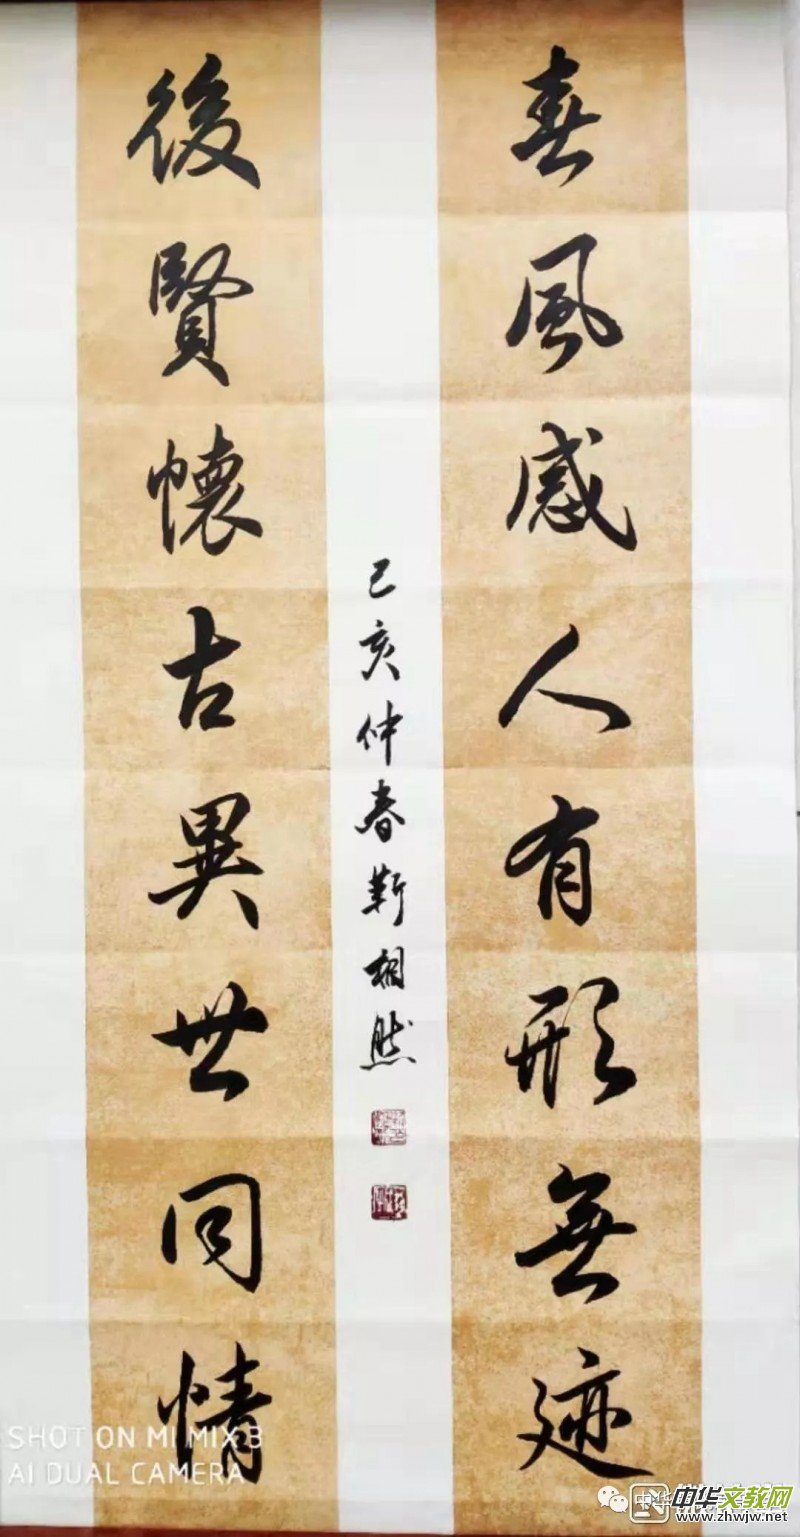 春風感人有形無迹
後賢懷古異世同情
己亥仲春靳相然
SHOT ON MI MIX 3
AI DUAL CAMERA
中华文教网
www.zhwjw.net